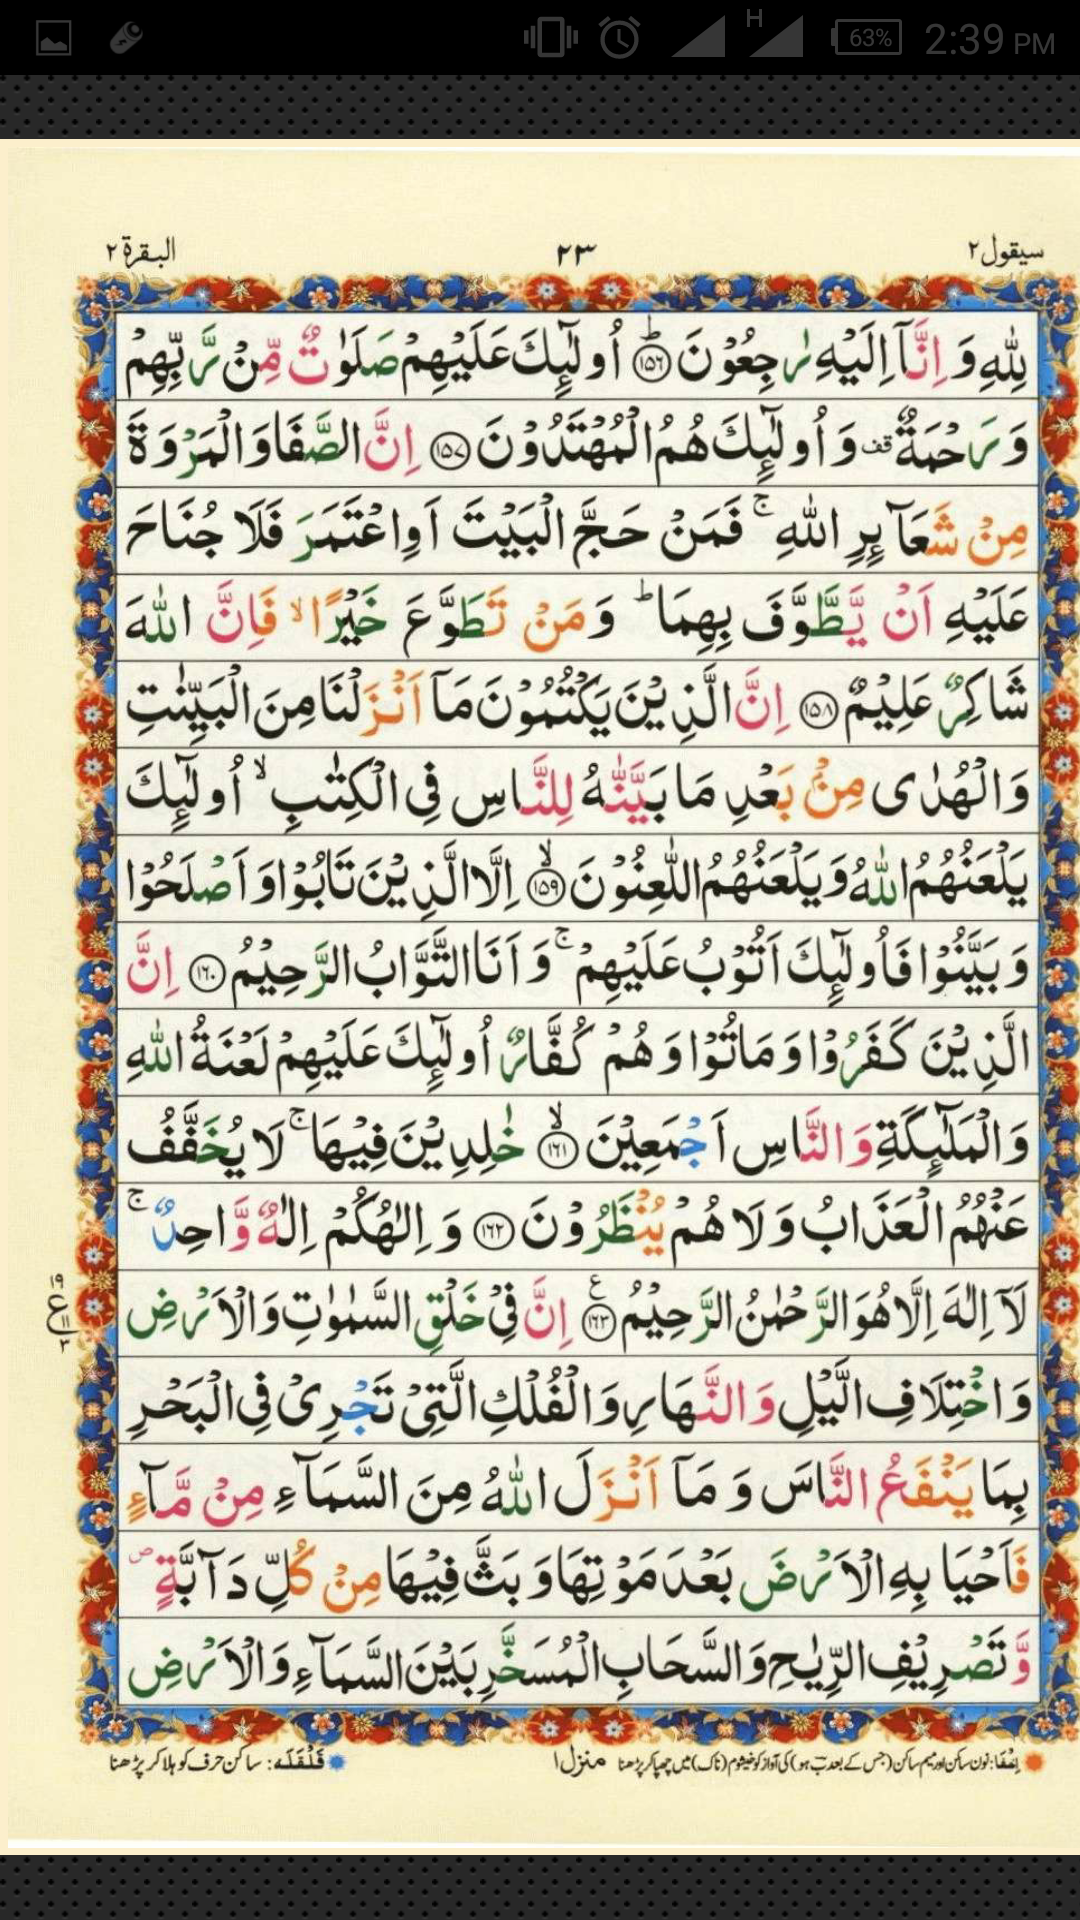 H 63% 2:39 PM
سیقول ٢ ٢٣ البقرة ٢
لِلّٰهِ وَ اِنَّاۤ اِلَیْهِ رٰجِعُوْنَ ؕ﴿١٥٦﴾ اُولٰٓىِٕكَ عَلَیْهِمْ صَلَوٰتٌ مِّنْ رَّبِّهِمْ
وَ رَحْمَةٌ قف وَ اُولٰٓىِٕكَ هُمُ الْمُهْتَدُوْنَ ﴿١٥٧﴾ اِنَّ الصَّفَا وَ الْمَرْوَةَ
مِنْ شَعَآىِٕرِ اللّٰهِ ۚ فَمَنْ حَجَّ الْبَیْتَ اَوِ اعْتَمَرَ فَلَا جُنَاحَ
عَلَیْهِ اَنْ یَّطَّوَّفَ بِهِمَا ؕ وَ مَنْ تَطَوَّعَ خَیْرًا ۙ فَاِنَّ اللّٰهَ
شَاكِرٌ عَلِیْمٌ ﴿١٥٨﴾ اِنَّ الَّذِیْنَ یَكْتُمُوْنَ مَاۤ اَنْزَلْنَا مِنَ الْبَیِّنٰتِ
وَ الْهُدٰی مِنْۢ بَعْدِ مَا بَیَّنّٰهُ لِلنَّاسِ فِی الْكِتٰبِ ۙ اُولٰٓىِٕكَ
یَلْعَنُهُمُ اللّٰهُ وَ یَلْعَنُهُمُ اللّٰعِنُوْنَ ۙ﴿١٥٩﴾ اِلَّا الَّذِیْنَ تَابُوْا وَ اَصْلَحُوْا
وَ بَیَّنُوْا فَاُولٰٓىِٕكَ اَتُوْبُ عَلَیْهِمْ ۚ وَ اَنَا التَّوَّابُ الرَّحِیْمُ ﴿١٦٠﴾ اِنَّ
الَّذِیْنَ كَفَرُوْا وَ مَاتُوْا وَ هُمْ كُفَّارٌ اُولٰٓىِٕكَ عَلَیْهِمْ لَعْنَةُ اللّٰهِ
وَ الْمَلٰٓىِٕكَةِ وَ النَّاسِ اَجْمَعِیْنَ ۙ﴿١٦١﴾ خٰلِدِیْنَ فِیْهَا ۚ لَا یُخَفَّفُ
عَنْهُمُ الْعَذَابُ وَ لَا هُمْ یُنْظَرُوْنَ ﴿١٦٢﴾ وَ اِلٰهُكُمْ اِلٰهٌ وَّاحِدٌ ۚ
لَاۤ اِلٰهَ اِلَّا هُوَ الرَّحْمٰنُ الرَّحِیْمُ ﴿١٦٣﴾ع اِنَّ فِیْ خَلْقِ السَّمٰوٰتِ وَ الْاَرْضِ ١٩ ع ١١ ٣
وَ اخْتِلَافِ الَّیْلِ وَ النَّهَارِ وَ الْفُلْكِ الَّتِیْ تَجْرِیْ فِی الْبَحْرِ
بِمَا یَنْفَعُ النَّاسَ وَ مَاۤ اَنْزَلَ اللّٰهُ مِنَ السَّمَآءِ مِنْ مَّآءٍ
فَاَحْیَا بِهِ الْاَرْضَ بَعْدَ مَوْتِهَا وَ بَثَّ فِیْهَا مِنْ كُلِّ دَآبَّةٍ ۪ص
وَّ تَصْرِیْفِ الرِّیٰحِ وَ السَّحَابِ الْمُسَخَّرِ بَیْنَ السَّمَآءِ وَ الْاَرْضِ
اِخْفَا: نون ساکن اور میم ساکن (جس کے بعد ب ہو) کی آواز کو خیشوم (ناک) میں چھپا کر پڑھنا منزل ١ قَلْقَلَه: ساکن حرف کو ہلا کر پڑھنا